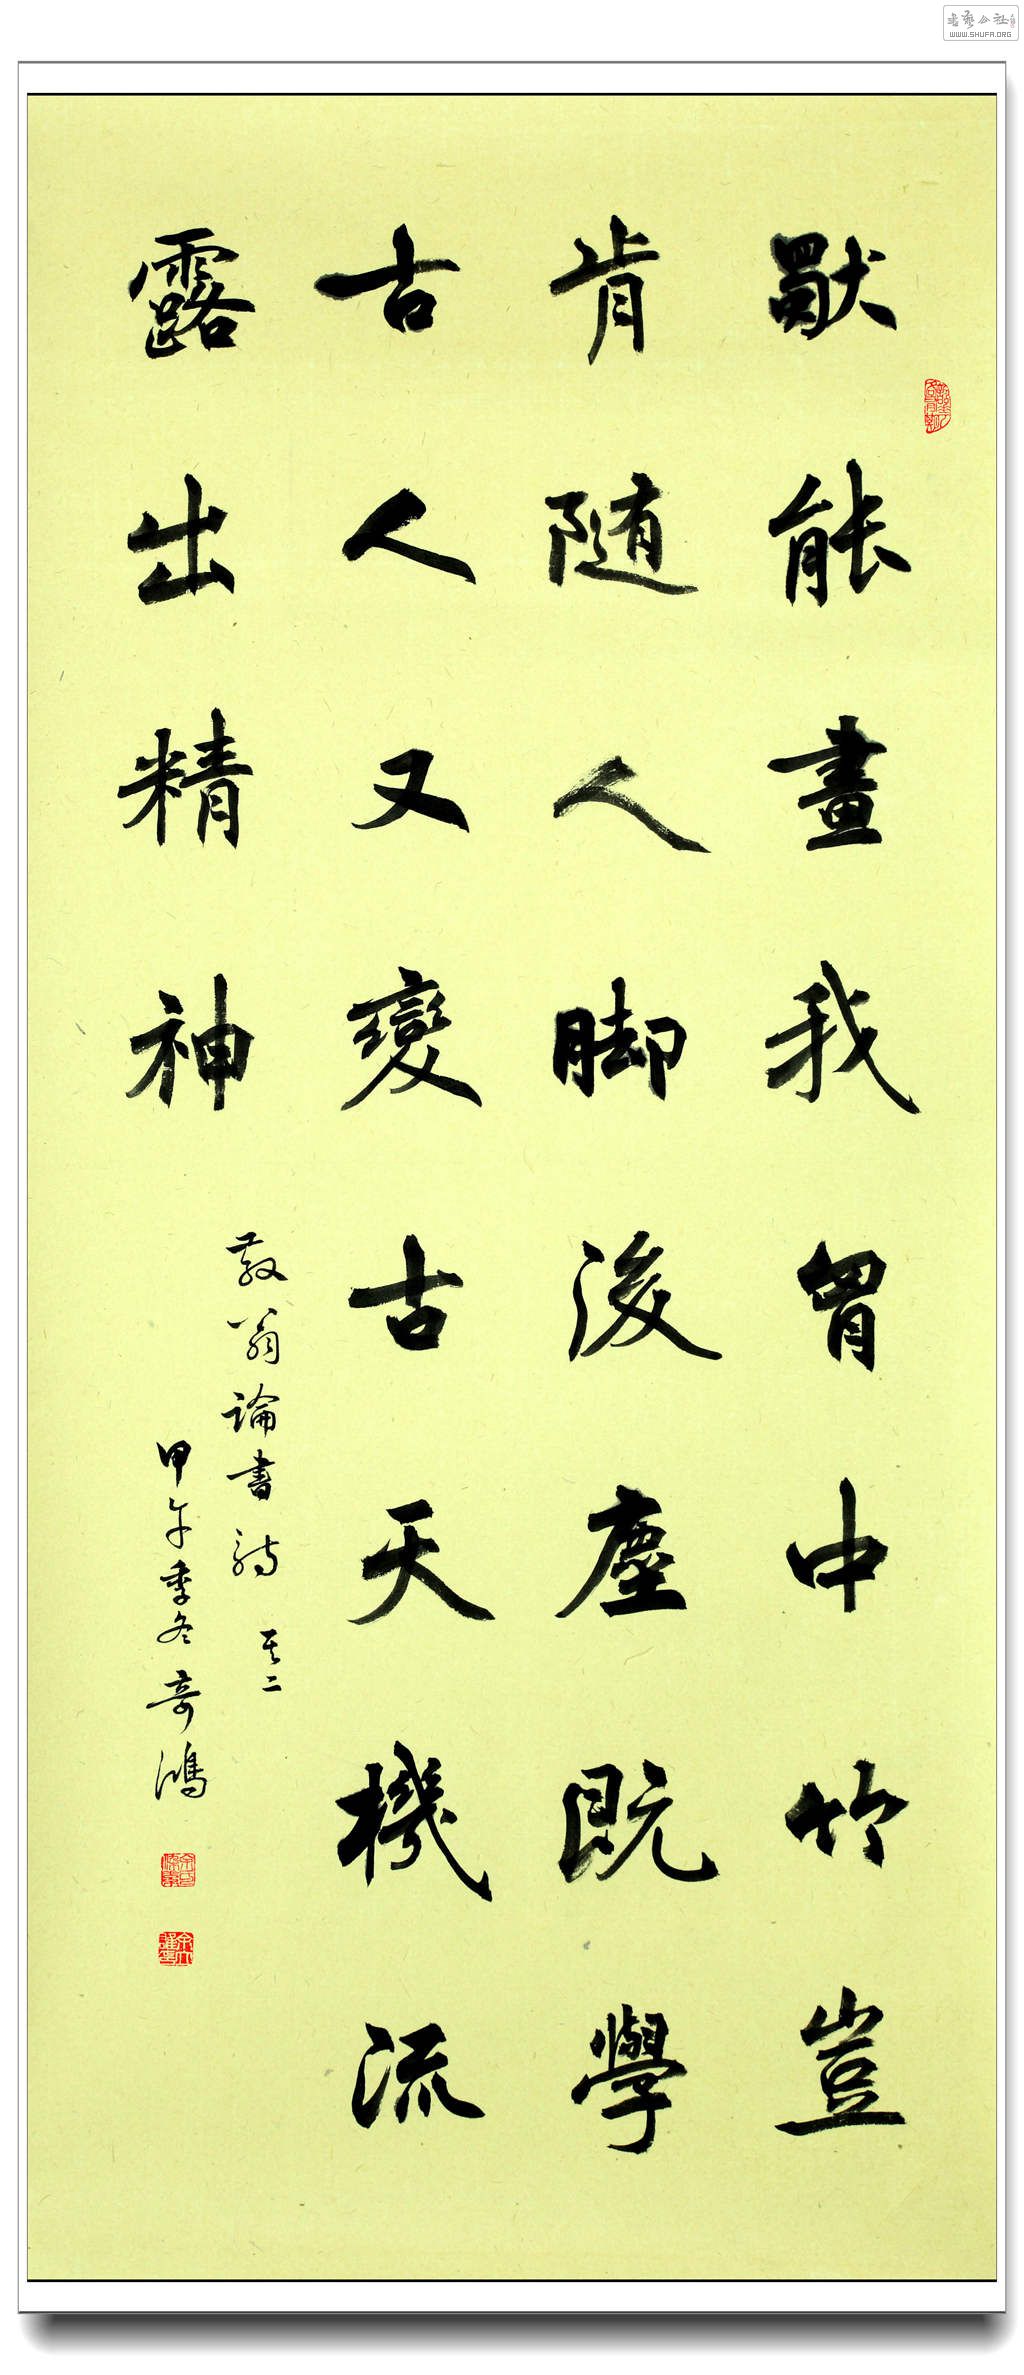 獨能畫我胷中竹豈
肯随人脚後塵既學
古人又變古天機流
露出精神
散翁論書詩 其二
甲午季冬奇鴻
書藝公社
WWW.SHUFA.ORG